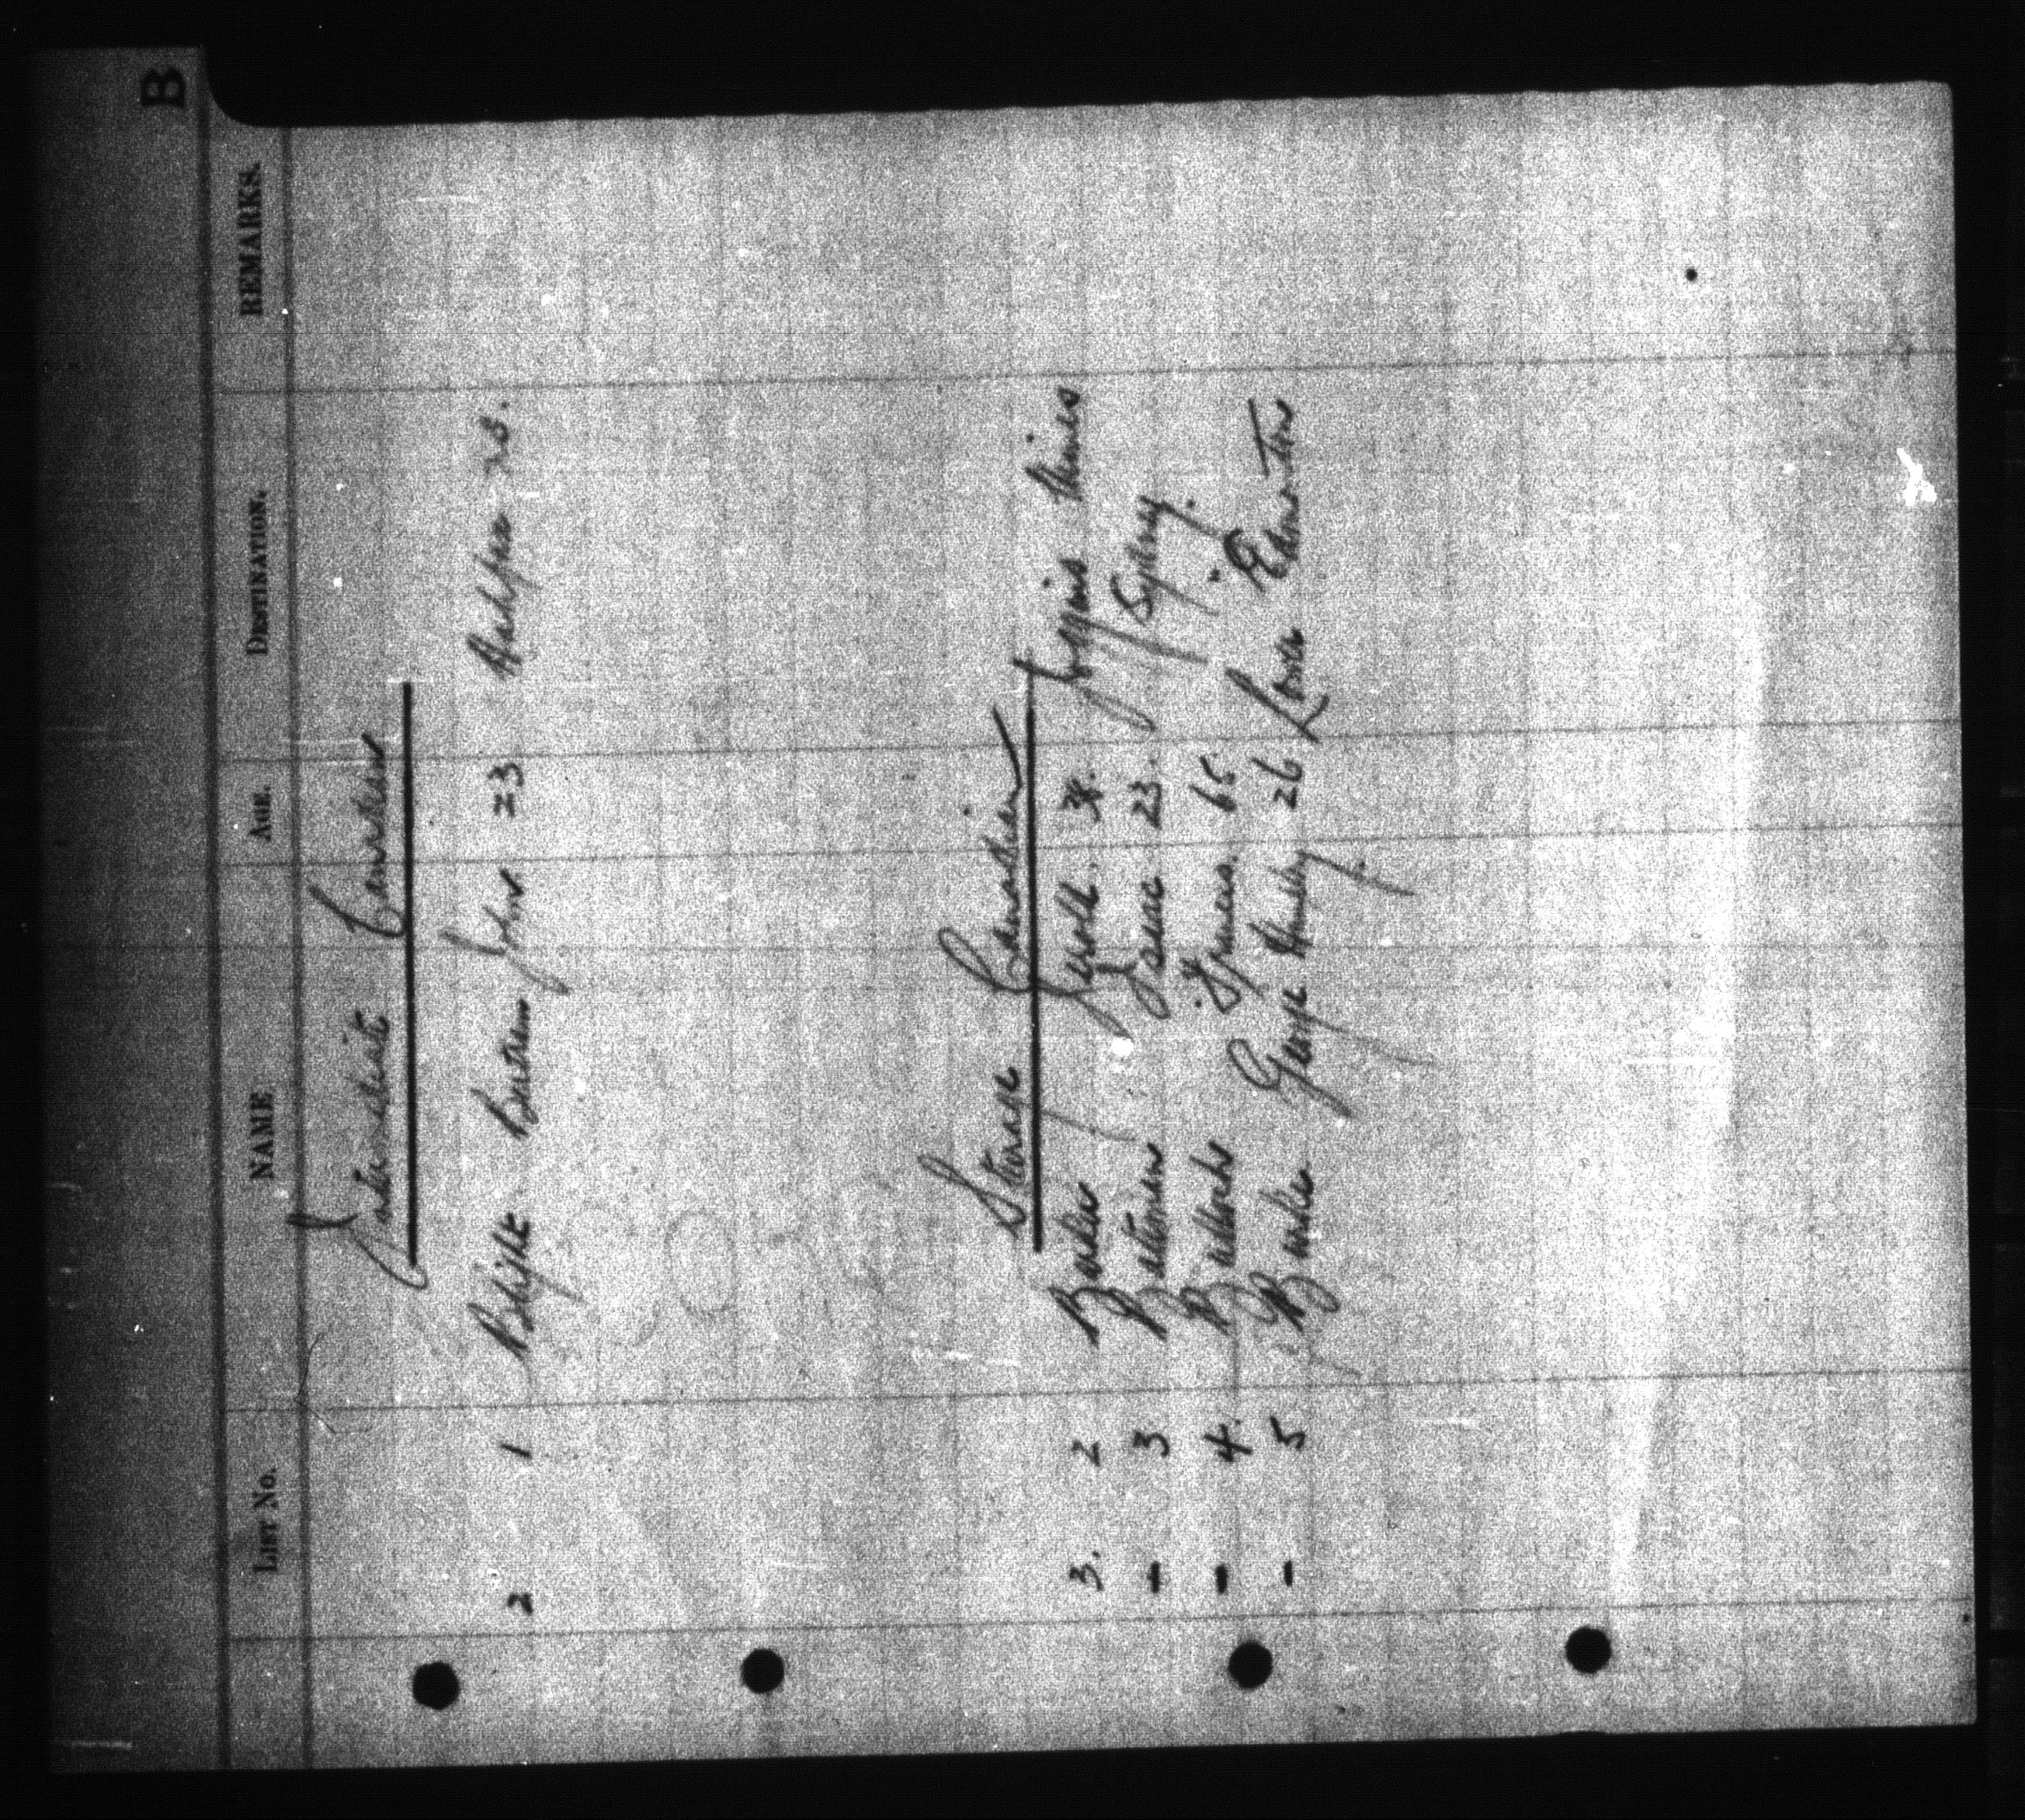 B
LIST No. NAME AGE. DESTINATION. REMARKS.
Intermediate Canadian
2 1 Blight Bertram John 23 Halifax N.S.
Steerage Canadian
3. 2 Gerald. Joggins Mines
– 3 Bateman Isaac 23. Sydney.
– 4. Francis. 65 "
– 5 Burke George Huxley 26 Edmonton